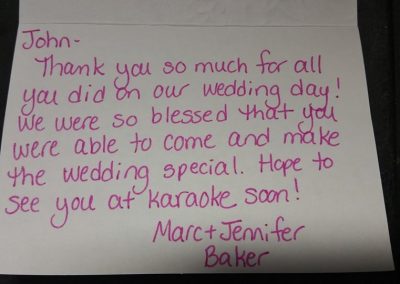 John-
Thank you so much for all
you did on our wedding day!
We were so blessed that you
were able to come and make
the wedding special. Hope to
see you at karaoke soon!
Marc + Jennifer
Baker